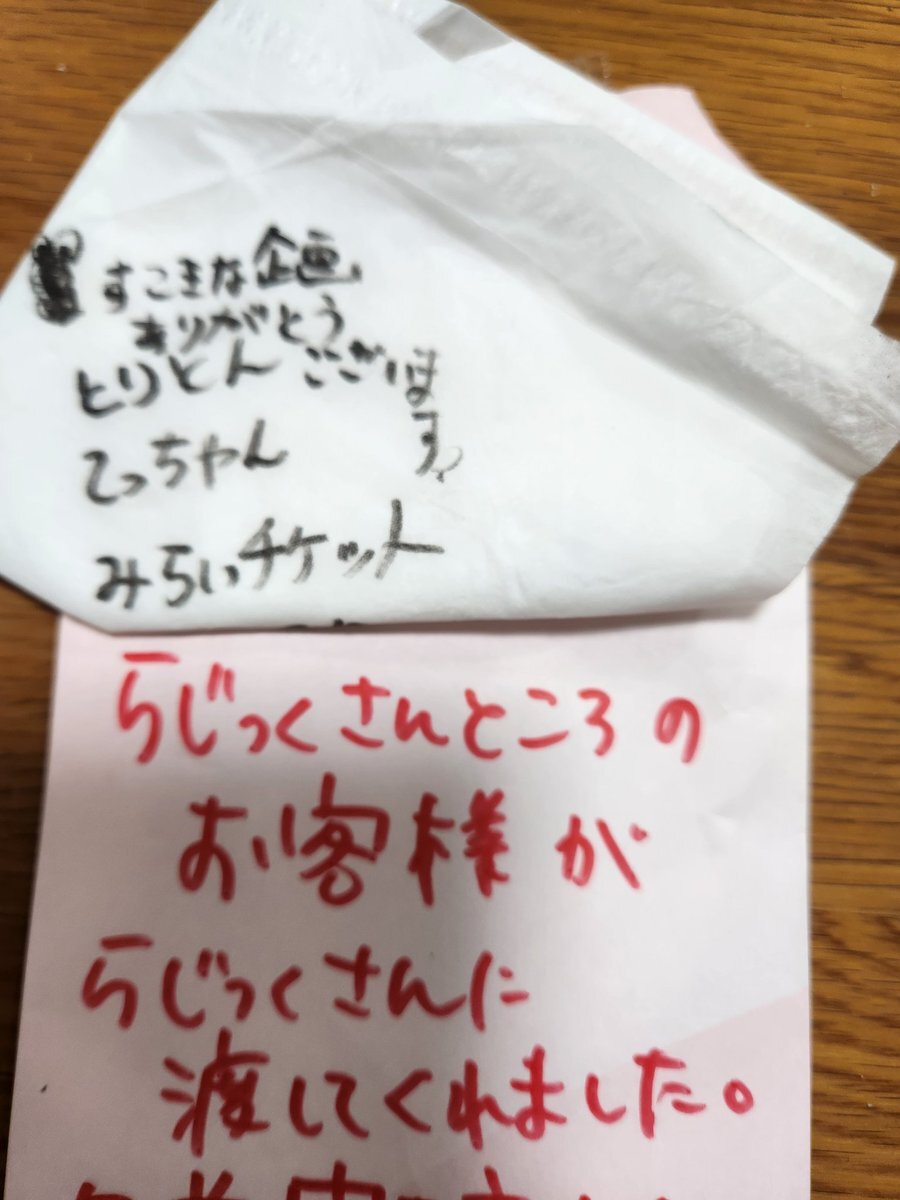 すこきな企画
ありがとう
ございます。
とりとん
てっちゃん
みらいチケット
らじっくさんところの
お客様が
らじっくさんに
渡してくれました。